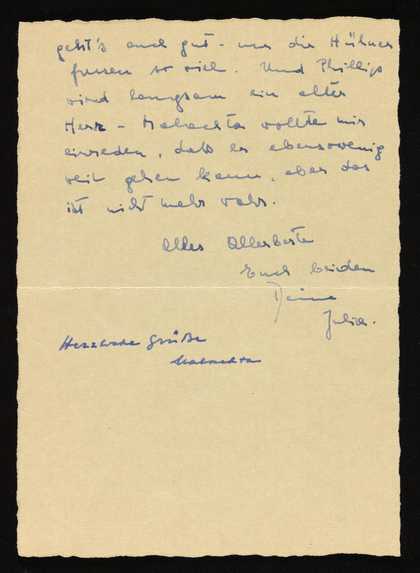 geht's auch gut - nur die Hühner
fressen so viel. Und Phillip
wird langsam ein alter
Herr - Mabachta wollte mir
einreden, dass er ebensowenig
weit gehen kann, aber das
ist nicht mehr wahr.
Alles Allerbeste
Euch beiden
Deine
Julia.
Herzliche Grüße